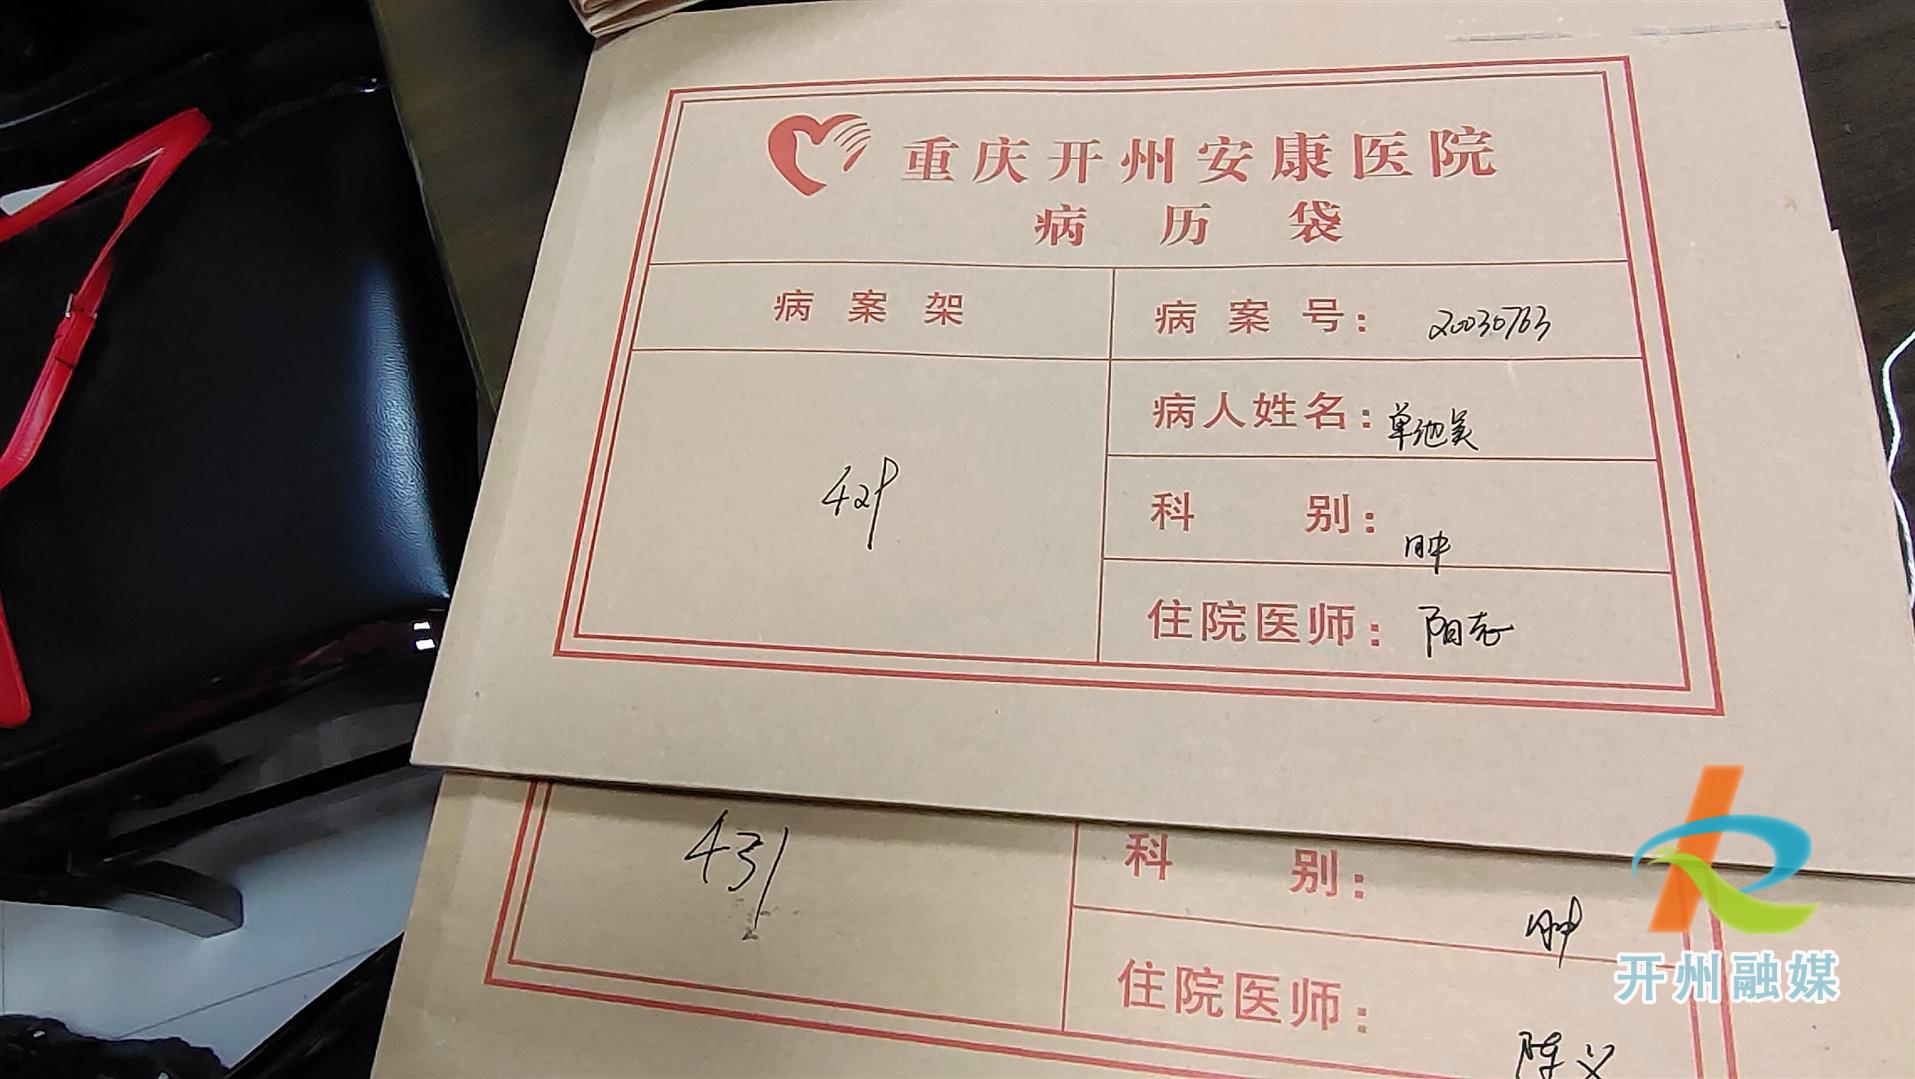 重庆开州安康医院
病 历 袋
病 案 架
病 案 号: 20030763
病人姓名:
科 别: 肿
住院医师: 阳志
429
431
科 别: 肿
住院医师: 陈义
开州融媒